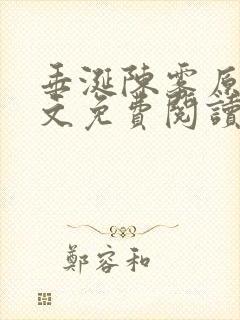 垂涎陳霧原
文免費閱讀
鄭容和